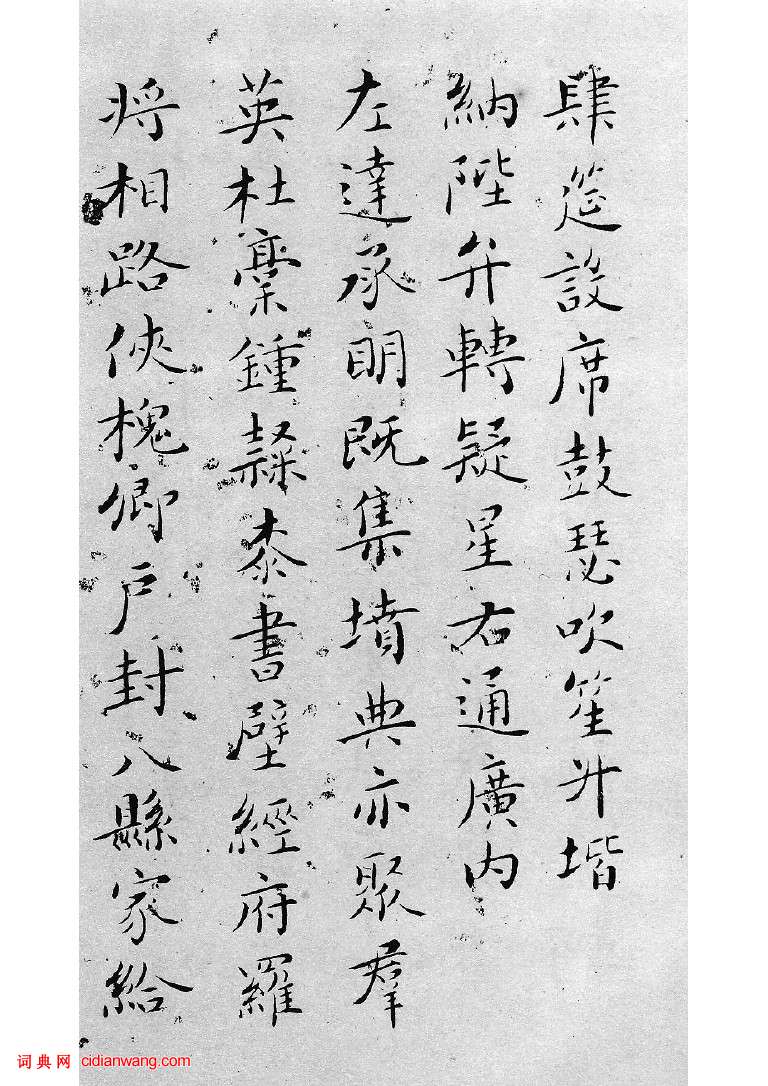 肆筵設席鼓瑟吹笙升堦
納陛弁轉疑星右通廣內
左達承明既集墳典亦聚羣
英杜稾鍾隸漆書壁經府羅
将相路俠槐卿戶封八縣家給
词典网 cidianwang.com